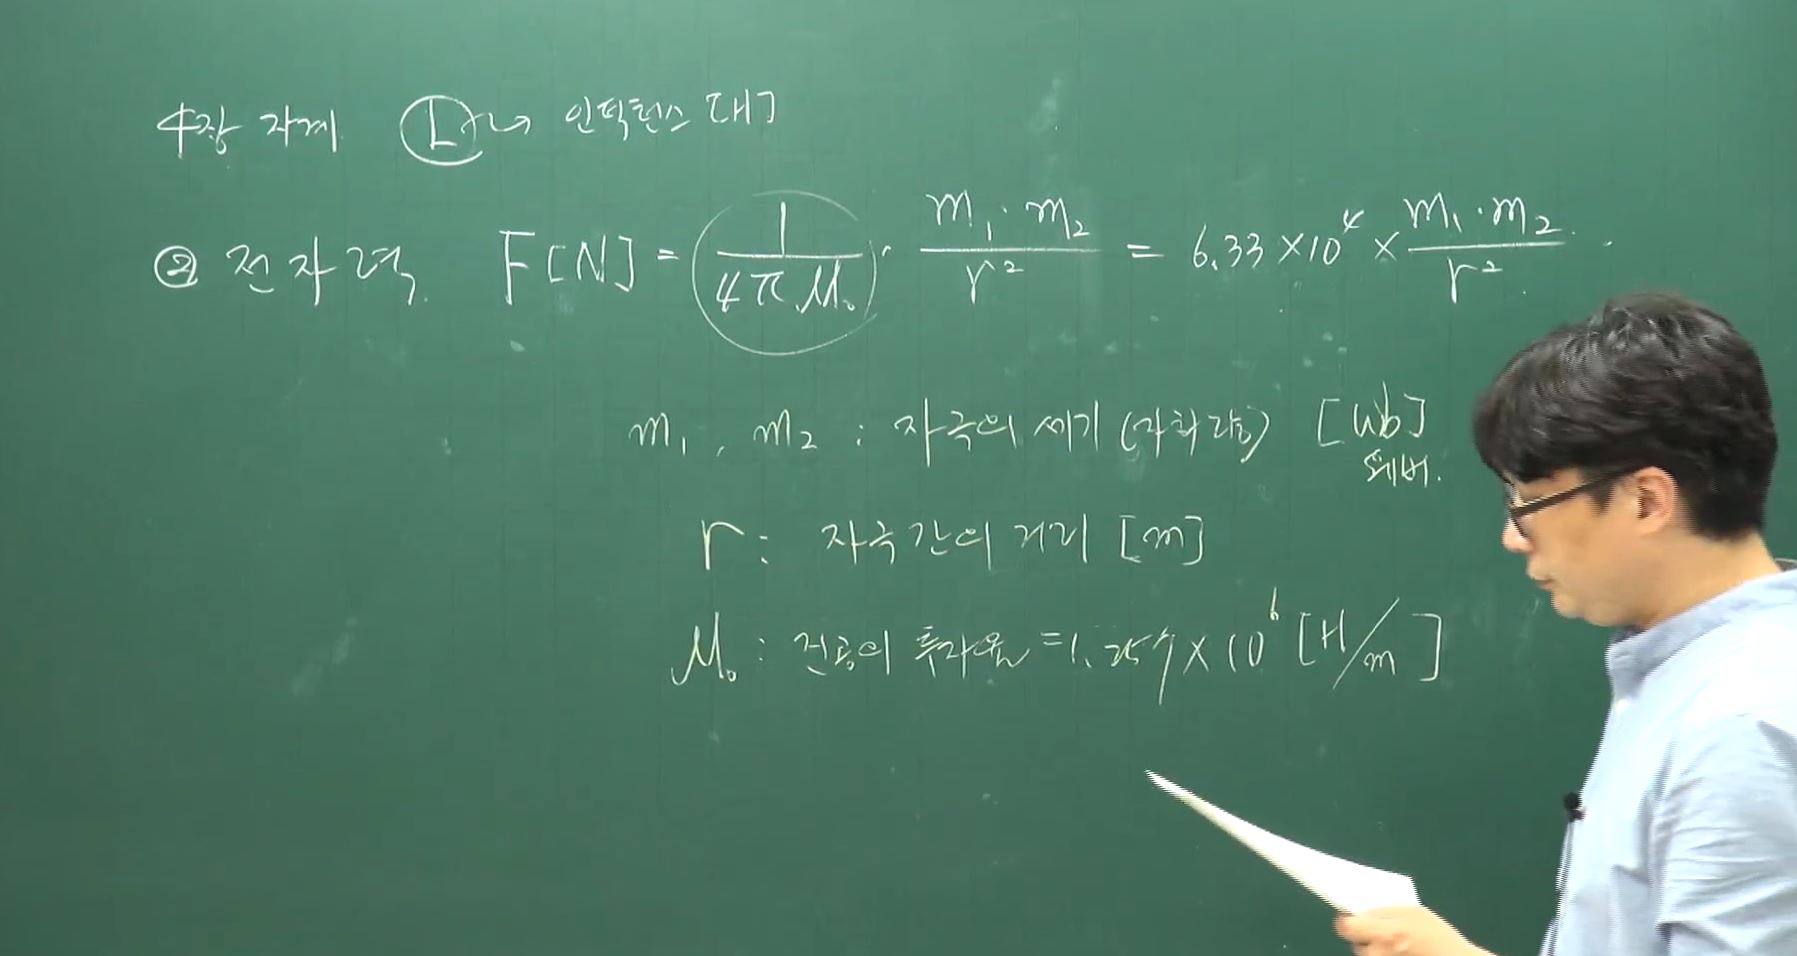 4장 자계 Ⓛ ↝ 인덕턴스 [H]
② 전자력. F[N] = 1/4πμ₀ · m₁·m₂/r² = 6.33×10⁴ × m₁·m₂/r².
m₁, m₂ : 자극의 세기(자하량) [wb]
웨버.
r : 자극간의 거리 [m]
μ₀ : 진공의 투자율 =1.257×10⁶ [H/m]